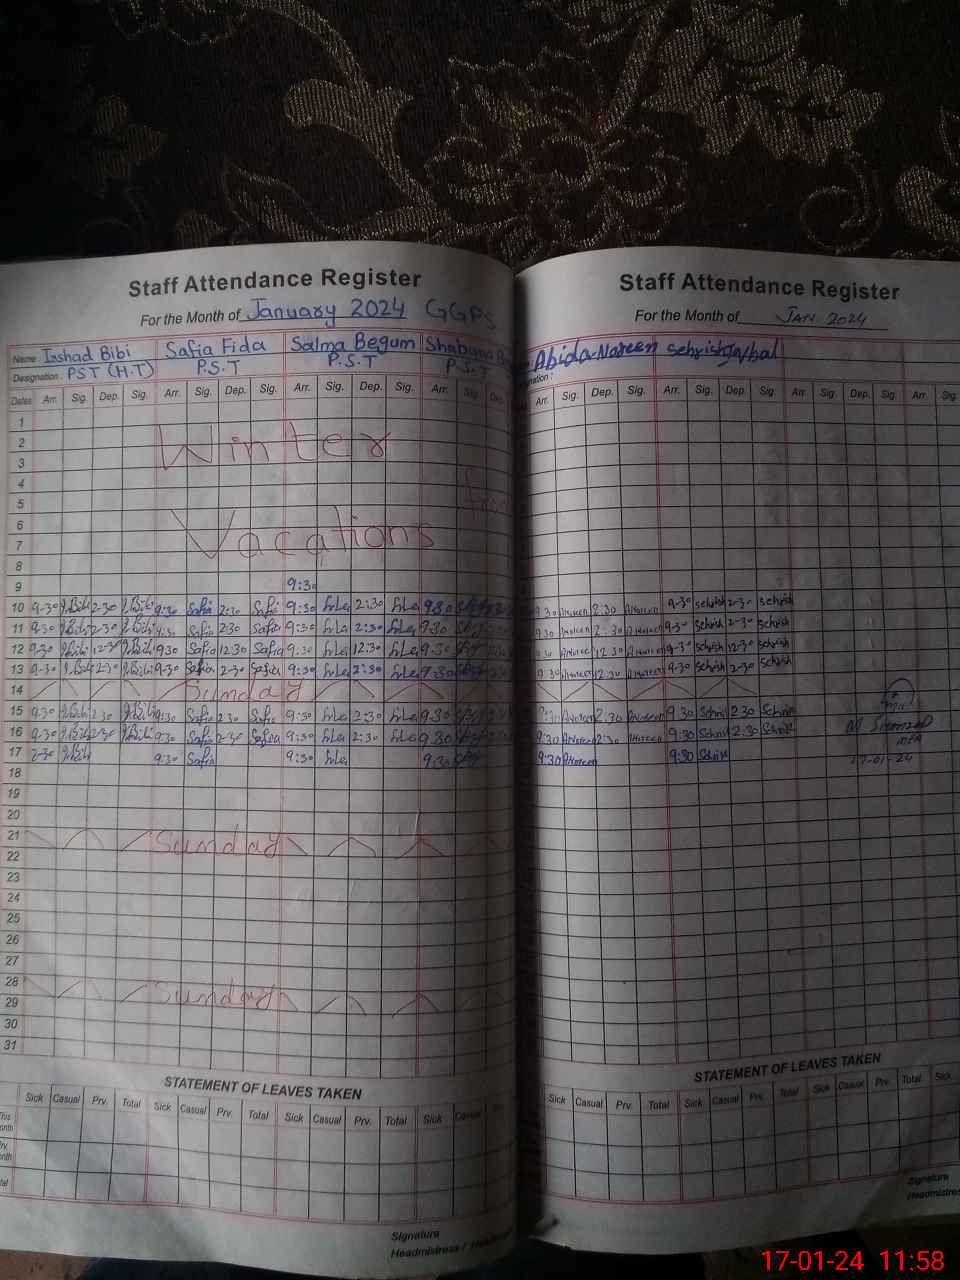 Staff Attendance Register
For the Month of January 2024 GGPS
Name: Irshad Bibi Safia Fida Salma Begum Shabana
Designation: PST (H.T) P.S.T P.S.T P.S.T
Dates Arr. Sig. Dep. Sig. Arr. Sig. Dep. Sig. Arr. Sig. Dep. Sig. Arr. Sig. Dep.
1
2 Winter
3
4
5
6
7 Vacations
8
9 9:30
10 9-30 I.Bibi 2-30 I.Bibi 9:30 Safia 2:30 Safia 9:30 2:30 9:30
11 9-30 I.Bibi 2-30 I.Bibi 9:30 Safia 2:30 Safia 9:30 2:30 9:30
12 9-30 I.Bibi 12-30 I.Bibi 9:30 Safia 12:30 Safia 9:30 12:30 9:30
13 9-30 I.Bibi 2-30 I.Bibi 9-30 Safia 2-30 Safia 9:30 2:30 9:30
14 Sunday
15 9-30 I.Bibi 2-30 I.Bibi 9:30 Safia 2:30 Safia 9:30 2:30 9:30
16 9-30 I.Bibi 2-30 I.Bibi 9:30 Safia 2-30 Safia 9:30 2:30 9:30
17 I.Bibi 9:30 Safia 9:30 9:30
18
19
20
21 Sunday
22
23
24
25
26
27
28 Sunday
29
30
31
STATEMENT OF LEAVES TAKEN
Sick Casual Prv. Total Sick Casual Prv. Total Sick Casual Prv. Total Sick Casual
Signature
Headmistress /
Staff Attendance Register
For the Month of JAN 2024
Abida Noreen Sehrish Iqbal
Arr. Sig. Dep. Sig. Arr. Sig. Dep. Sig. Arr. Sig. Dep. Sig. Arr. Sig.
9:30 ANoreen 2:30 ANoreen 9-30 Sehrish 2-30 Sehrish
9:30 ANoreen 2:30 ANoreen 9-30 Sehrish 2-30 Sehrish
9:30 ANoreen 12:30 ANoreen 9-30 Sehrish 12-30 Sehrish
9:30 ANoreen 12:30 ANoreen 9-30 Sehrish 2-30 Sehrish
9:30 ANoreen 2:30 ANoreen 9:30 Sehrish 2:30 Sehrish
9:30 ANoreen 2:30 ANoreen 9:30 Sehrish 2:30 Sehrish
9:30 ANoreen 9:30 Sehrish
MEA
17-01-24
STATEMENT OF LEAVES TAKEN
Sick Casual Prv. Total Sick Casual Prv. Total Sick Casual Prv. Total Sick
Signature
Headmistress
17-01-24 11:58